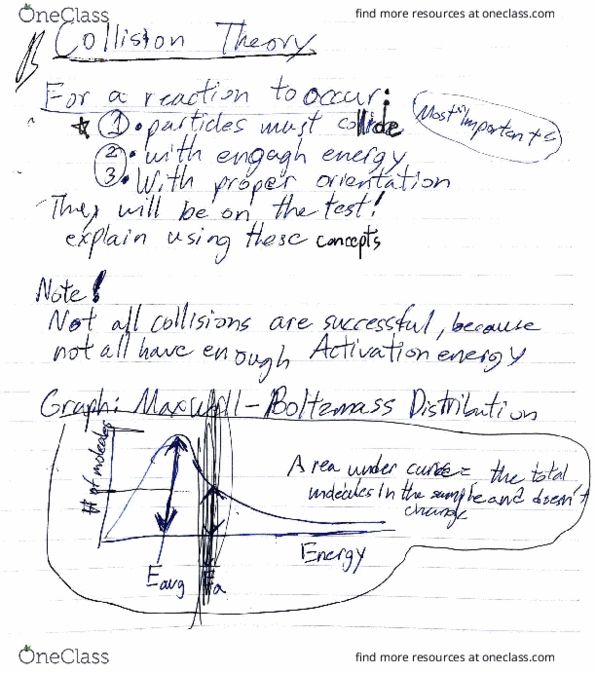 OneClass
find more resources at oneclass.com
Collision Theory
For a reaction to occur:
① • particles must collide
Most Important
② • with engagh energy
③ • With proper orientation
They will be on the test!
explain using these concepts
Note!
Not all collisions are successful, because
not all have enough Activation energy
Graph: Maxwell-Boltzmass Distribution
# of molecules
Area under curve = the total
molecules in the sample and doesn't
change
Energy
Eavg
Ea
OneClass
find more resources at oneclass.com